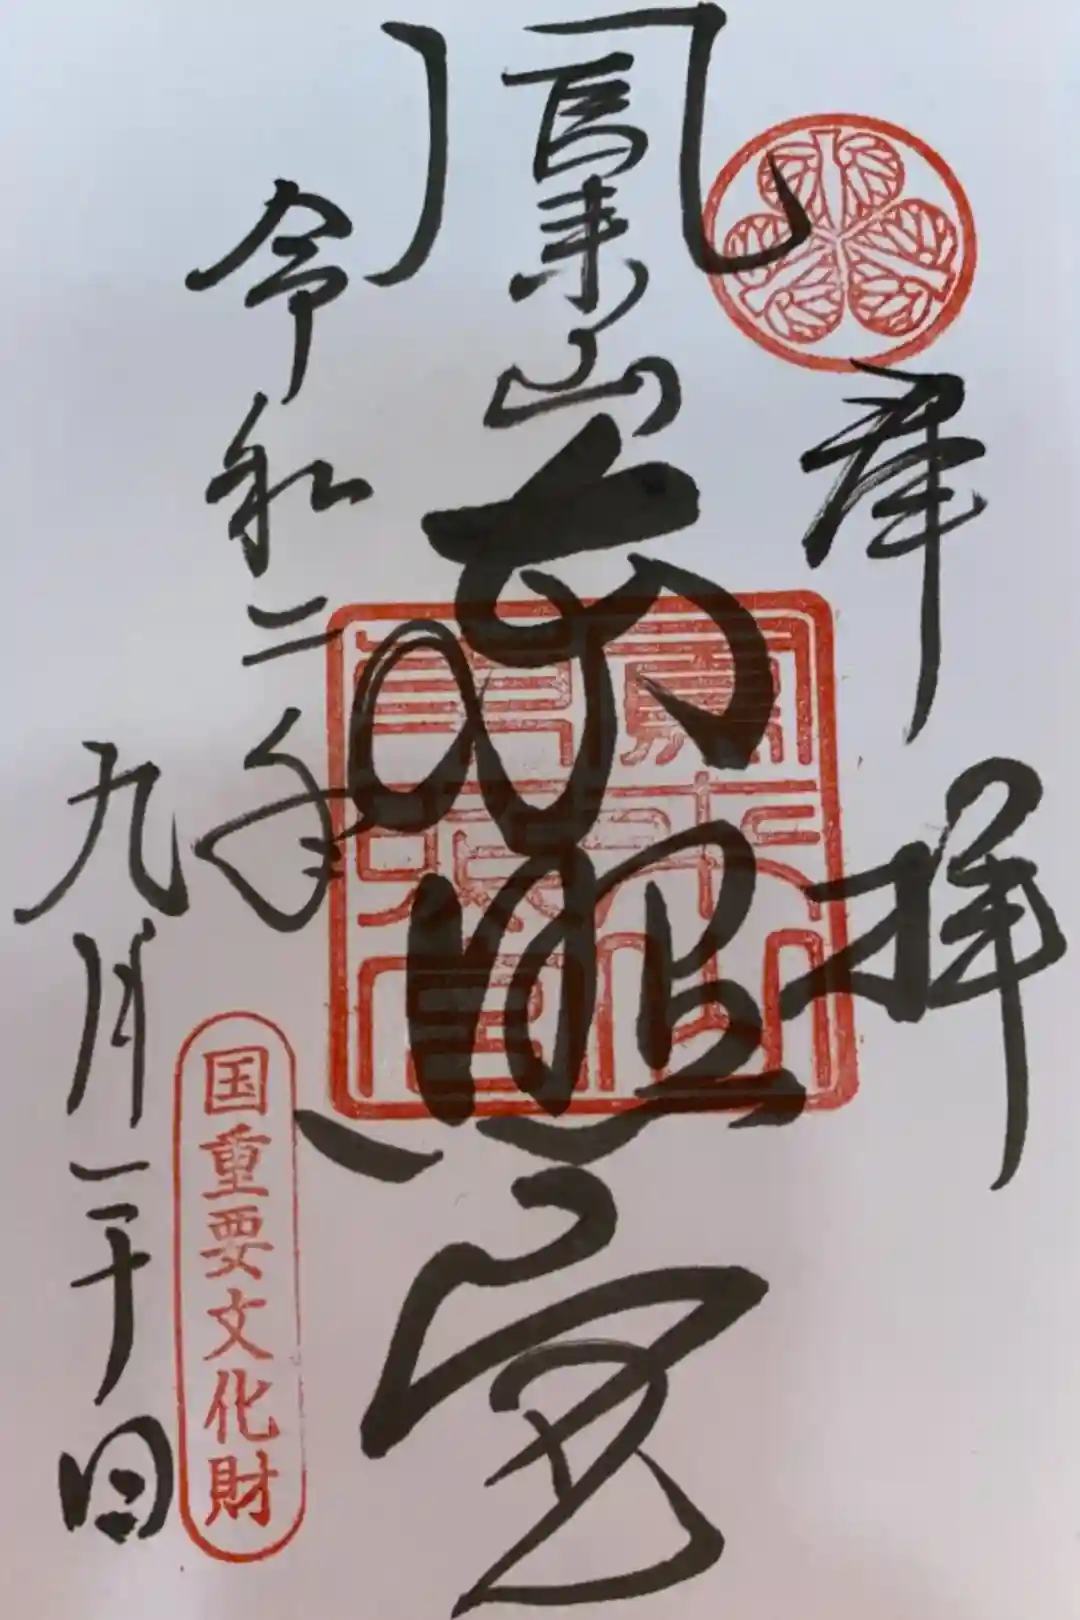 奉拝
鳳来山東照宮
令和二年
九月二十日
国重要文化財